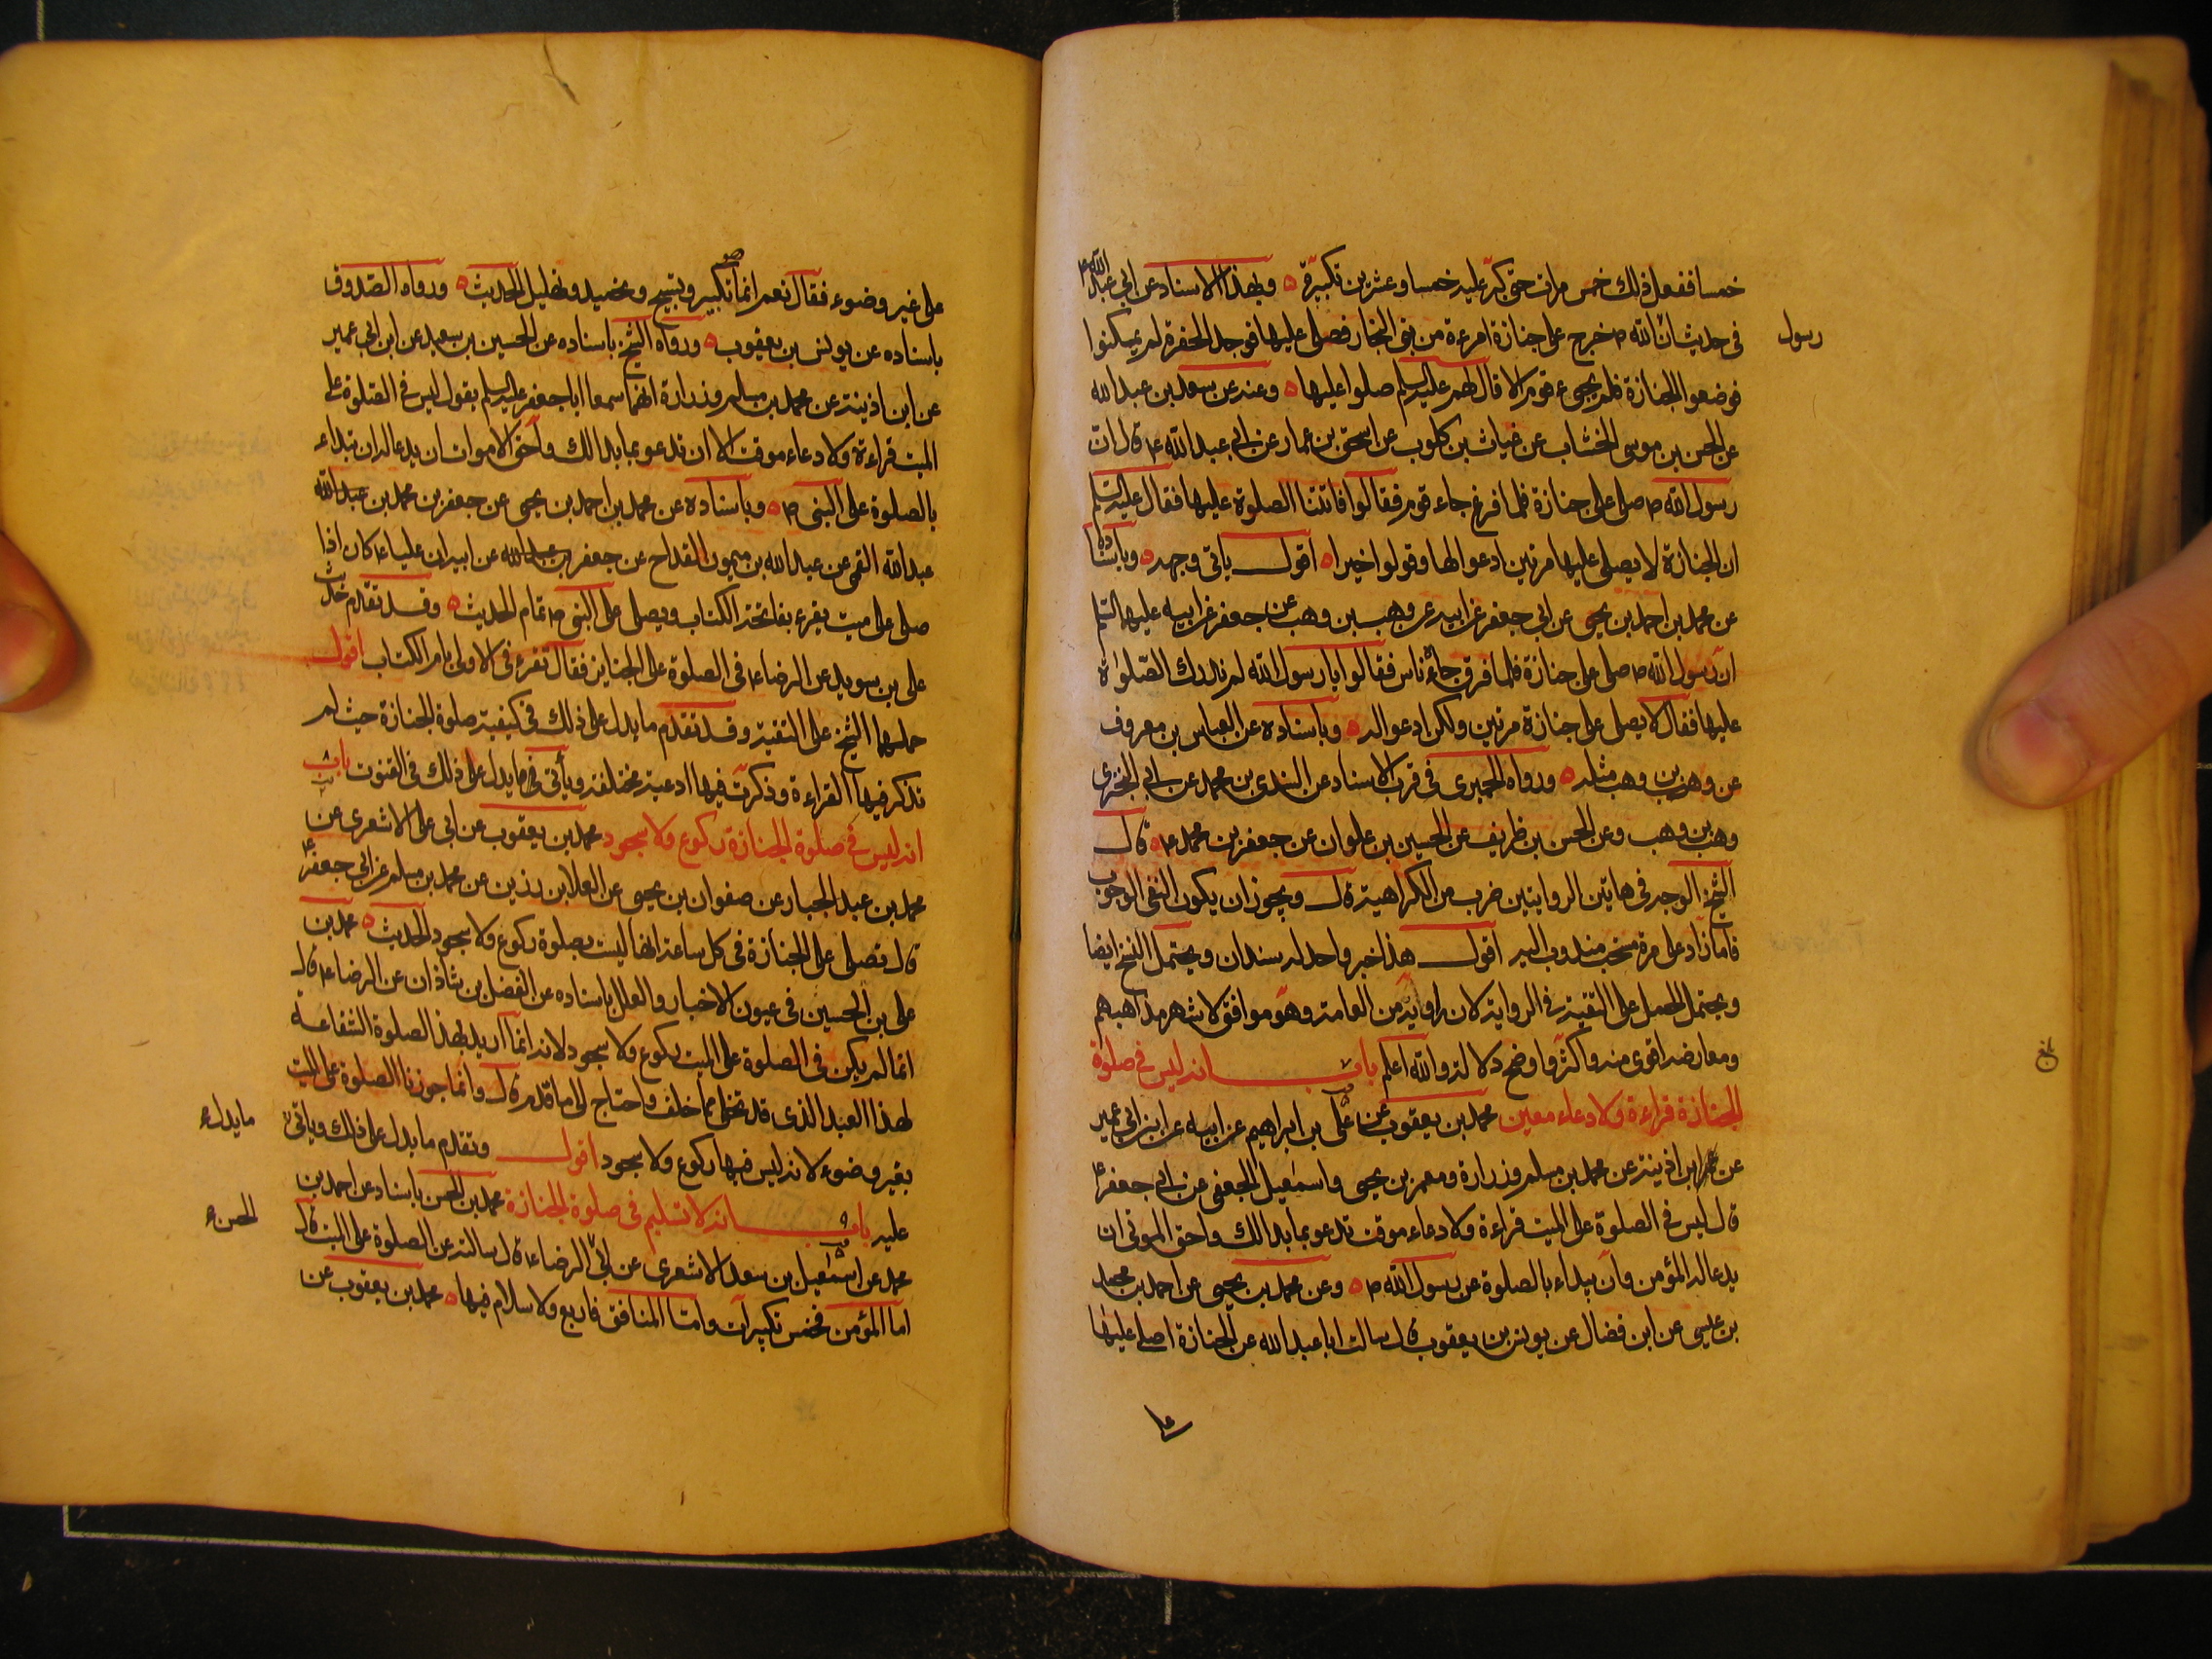 خمسا ففعل ذلك خمس مرات حتى كبر عليه خمسا وعشرين تكبيرة ٥ وبهذا الاسناد عن ابي عبد الله ع
رسول
في حديث ان الله ص خرج على جنازة امرءة من بني النجار فصلى عليها فوجد الحفرة لم يمكنوا
فوضعوا الجنازة فلم يجئ قوم الا قال لهم عليه السلم صلوا عليها ٥ وعنه عن سعد بن عبد الله
عن الحسن بن موسى الخشاب عن غياث بن كلوب عن اسحق بن عمار عن ابي عبد الله ع قال ان
رسول الله ص صلى على جنازة فلما فرغ جاء قوم فقالوا فاتتنا الصلوة عليها فقال عليه السلم
ان الجنازة لا يصلى عليها مرتين ادعوا لها وقولوا خيرا ٥ اقول ياتي وجهه ٥ وباسناده
عن محمد بن احمد بن يحيى عن ابي جعفر عن ابيه عن وهب بن وهب عن جعفر عن ابيه عليهما السلم
ان رسول الله ص صلى على جنازة فلما فرغ جاءه ناس فقالوا يا رسول الله لم ندرك الصلوة
عليها فقال لا يصلى على جنازة مرتين ولكن ادعوا له ٥ وباسناده عن العباس بن معروف
عن وهب بن وهب مثله ٥ ورواه الحميري في قرب الاسناد عن السندي بن محمد عن ابي البختري
وهب بن وهب وعن الحسن بن ظريف عن الحسين بن علوان عن جعفر بن محمد ع ٥ قال
الشيخ الوجه في هاتين الروايتين ضرب من الكراهية قال ويجوز ان يكون النفي الوجوب
فاما زاد على مرة مستحب مندوب اليه اقول هذا خبر واحد له سندان ويحتمل النسخ ايضا
ويحتمل الحمل على التقية في الرواية لان راويه من العامة وهو موافق لاشهر مذاهبهم
ومعارضه اقوى منه واكثر واوضح دلالة والله اعلم باب انه ليس في صلوة
الجنازة قراءة ولا دعاء معين محمد بن يعقوب عن علي بن ابراهيم عن ابيه عن ابن ابي عمير
عن عمر ابن اذينة عن محمد بن مسلم وزرارة ومعمر بن يحيى واسمعيل الجعفي عن ابي جعفر ع
قال ليس في الصلوة على الميت قراءة ولا دعاء موقت تدعو بما بدا لك واحق الموتى ان
يدعا له المؤمن وان يبداء بالصلوة عن رسول الله ص ٥ وعن محمد بن يحيى عن احمد بن محمد
بن عيسى عن ابن فضال عن يونس بن يعقوب قال سالت ابا عبد الله عن الجنازة اصلى عليها
على
بلغ
على غير وضوء فقال نعم انما تكبير وتسبيح وتحميد وتهليل الحديث ٥ ورواه الصدوق
باسناده عن يونس بن يعقوب ٥ ورواه الشيخ باسناده عن الحسين بن سعيد عن ابن ابي عمير
عن ابن اذينة عن محمد بن مسلم وزرارة انهما سمعا ابا جعفر عليه السلم يقول ليس في الصلوة على
الميت قراءة ولا دعاء موقت الا ان تدعو بما بدا لك واحق الاموات ان يدعا له ان تبداء
بالصلوة على النبي ص ٥ وباسناده عن محمد بن احمد بن يحيى عن جعفر بن محمد بن عبد الله
عبد الله القمي عن عبد الله بن ميمون القداح عن جعفر بن عبد الله عن ابيه ان عليا ع كان اذا
صلى على ميت يقرء بفاتحة الكتاب ويصلى على النبي ص تمام الحديث ٥ وقد تقدم حديث
علي بن سويد عن الرضا ع في الصلوة على الجنايز فقال تقرء في الاولى بام الكتاب اقول
حملهما الشيخ على التقية وقد تقدم ما يدل على ذلك في كيفية صلوة الجنازة حيث لم
تذكر فيها القراءة وذكرت فيها ادعية مختلفة وياتي في ما يدل على ذلك في القنوت باب
انه ليس في صلوة الجنازة ركوع ولا سجود محمد بن يعقوب عن ابي علي الاشعري عن
محمد بن عبد الجبار عن صفوان بن يحيى عن العلا بن رزين عن محمد بن مسلم عن ابي جعفر ع
قال تصلى على الجنازة في كل ساعة انها ليست بصلوة ركوع ولا سجود الحديث ٥ محمد بن
علي بن الحسين في عيون الاخبار والعلل باسناده عن الفضل بن شاذان عن الرضا ع قال
انما لم يكن في الصلوة على الميت ركوع ولا سجود لانه انما اريد بهذا الصلوة الشفاعة
لهذا العبد الذي قد تخلى مما خلف واحتاج الى ما قدم قال وانما جوزنا الصلوة على الميت
بغير وضوء لانه ليس فيها ركوع ولا سجود اقول وتقدم ما يدل على ذلك وياتي
ما يدل ع
عليه باب انه لا تسليم في صلوة الجنازة محمد بن الحسن باسناده عن احمد بن
الحسن ع
محمد عن اسمعيل بن سعد الاشعري عن ابي الرضا ع قال سالته عن الصلوة على الميت قال
اما المؤمن فخمس تكبيرات واما المنافق فاربع ولا سلام فيها ٥ محمد بن يعقوب عن